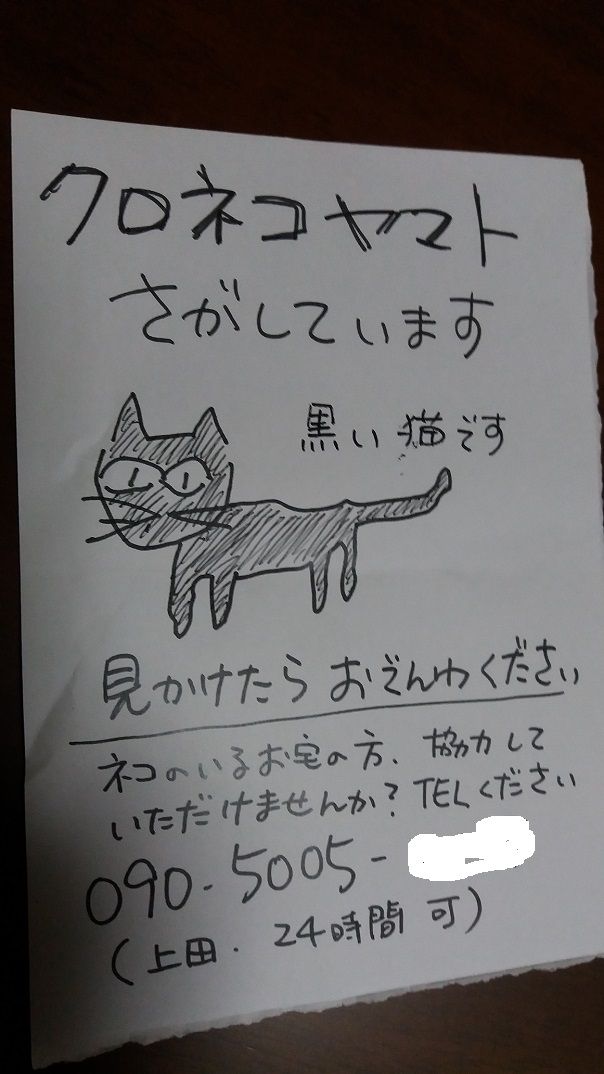 クロネコヤマト
さがしています
黒い猫です
見かけたら おでんわください
ネコのいるお宅の方、協力して
いただけませんか? TELください
090-5005-
(上田. 24時間 可)